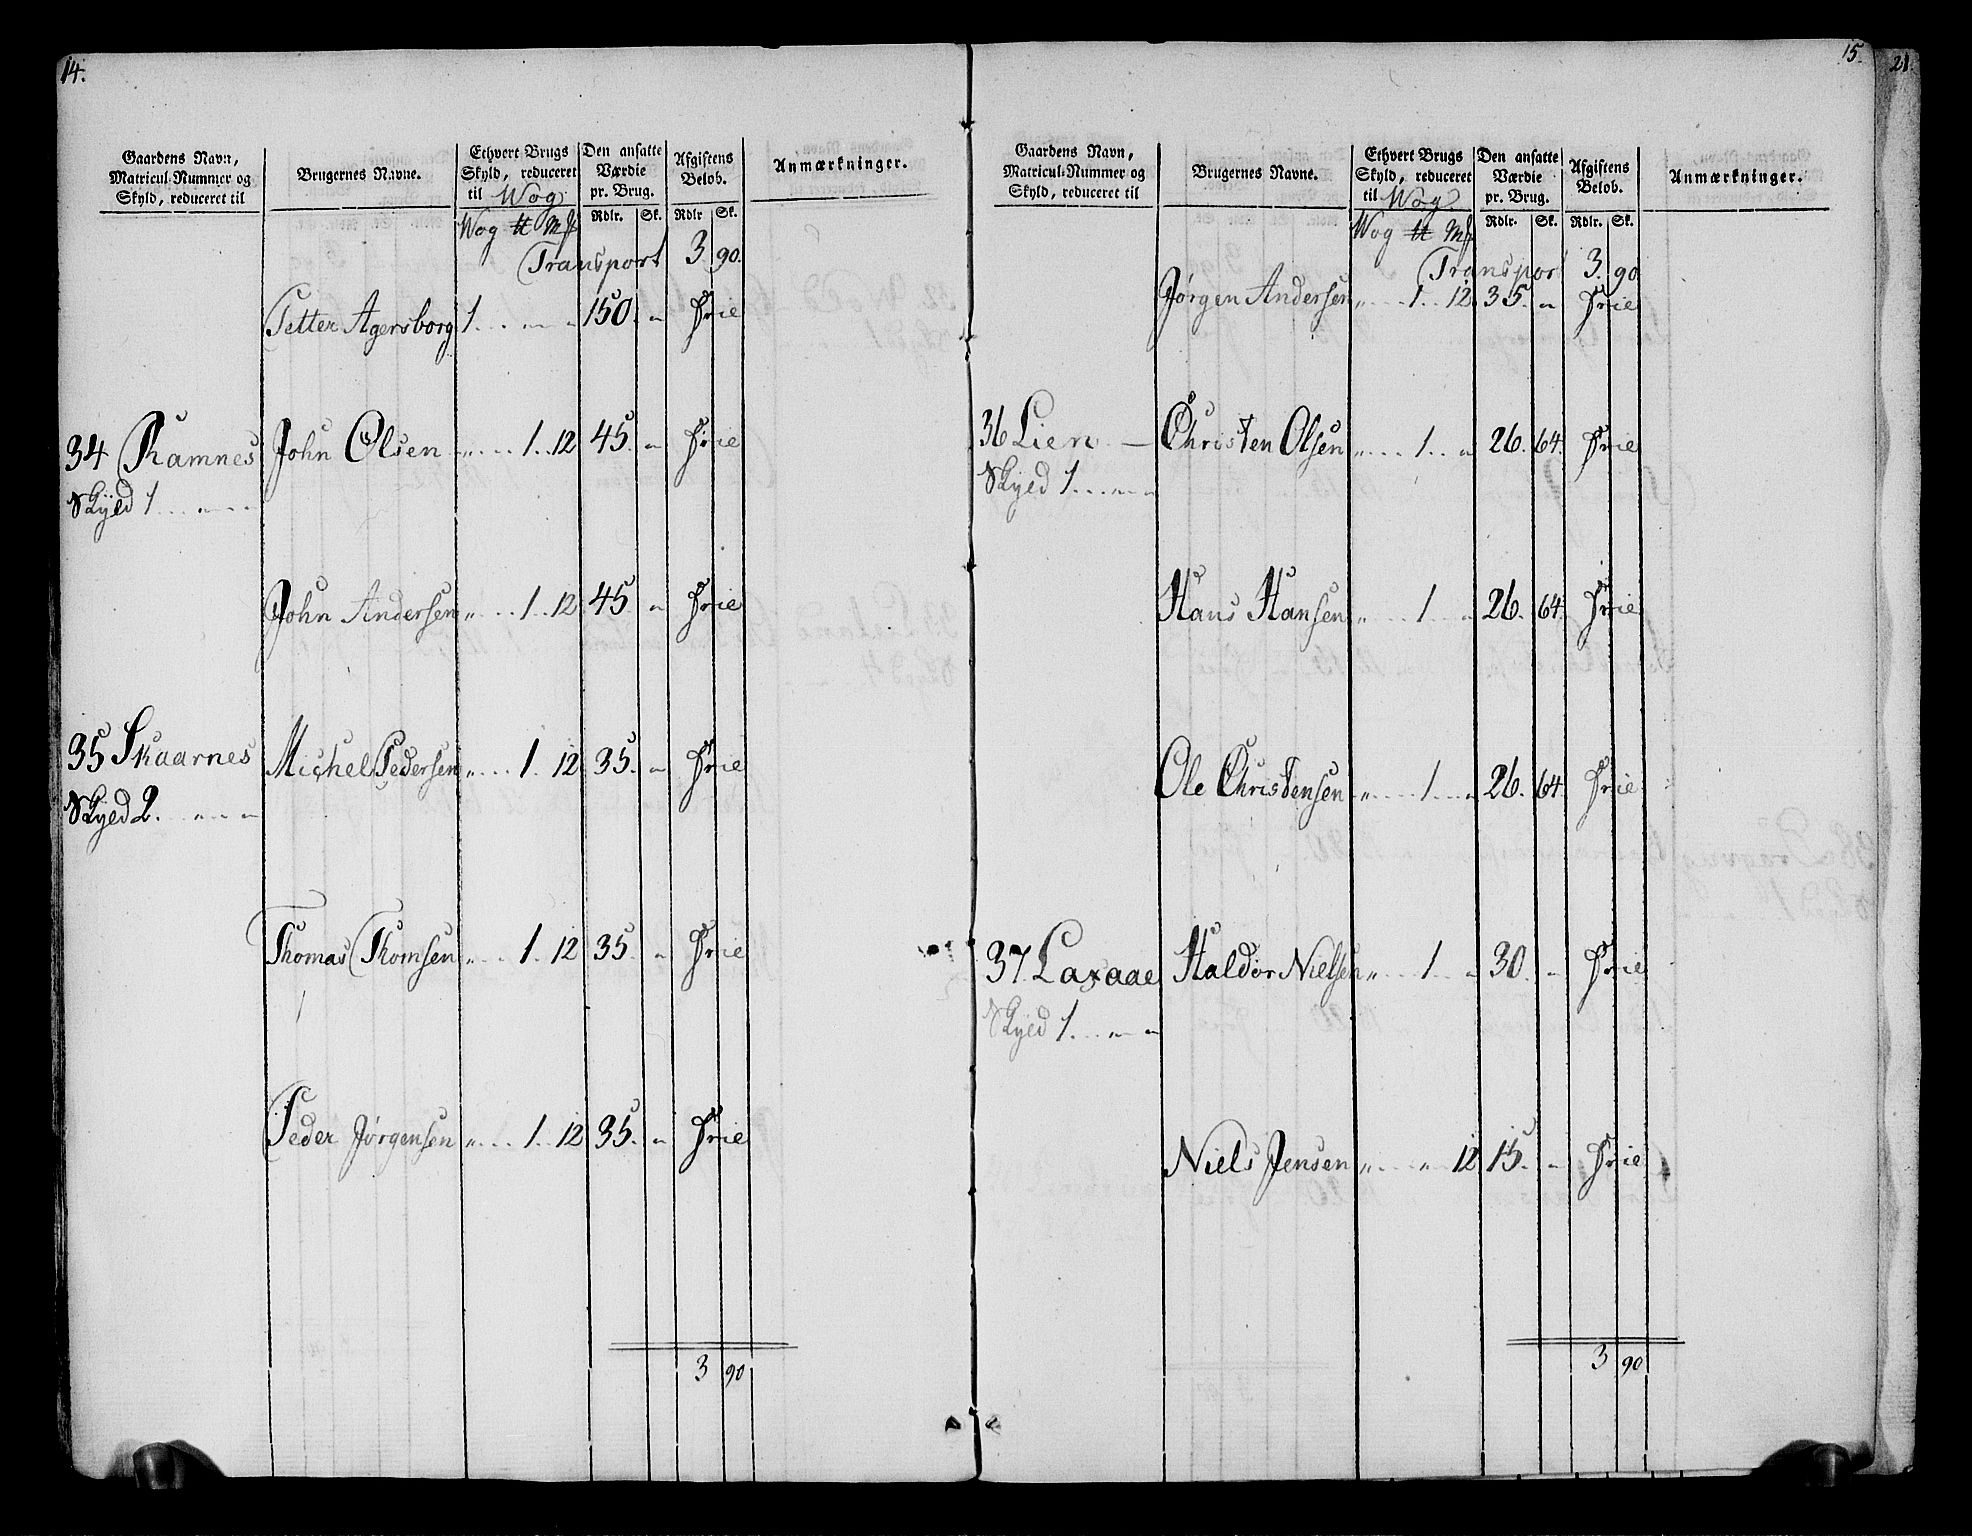 14.
Gaardens Navn, Matricul-Nummer og Skyld, reduceret til | Brugernes Navne. | Ethvert Brugs Skyld, reduceret til Wog | Den ansatte Værdie pr. Brug. | Afgiftens Beløb. | Anmærkninger.
Wog ℔ Mk | Rdlr. | Sk. | Rdlr | Sk.
Transport 3. 90.
Petter Agersborg 1. . . „ „ 150. „ Frie
34 Ramnes John Olsen „ . . . 1 . . 12 45. „ Frie
Skyld 1 . . . „ . .
John Andersen „ . . . 1 . . 12 45. „ Frie
35 Skaarnes Michel Pedersen „ . . . 1 . . 12 35. „ Frie
Skyld 2. . . „ „
Thomas Thomsen „ . . . 1 . . 12 35. „ Frie
Peder Jørgensen „ . . . 1 . . 12 35. „ Frie
3 90
15.
21.
Gaardens Navn, Matricul-Nummer og Skyld, reduceret til | Brugernes Navne. | Ethvert Brugs Skyld, reduceret til Wog | Den ansatte Værdie pr. Brug. | Afgiftens Beløb. | Anmærkninger.
Wog ℔ Mk | Rdlr. | Sk. | Rdlr. | Sk.
Transport 3. 90
Jørgen Andersen „ . . . 1 . . 12 35. „ Frie
36 Lien — Christen Olsen „ . . . 1 . . „ 26. 64. Frie
Skyld 1. . . „ „
Hans Hansen „ . . . 1 . . „ 26. 64. Frie
Ole Christensen „ . . . 1 . . „ 26. 64. Frie
37. Laxaae Haldor Nielsen „ . . . 1 . . „ 30. „ Frie
Skyld 1. . . „ „
Niels Jensen „ . . . „ 12 15. „ Frie
3 90